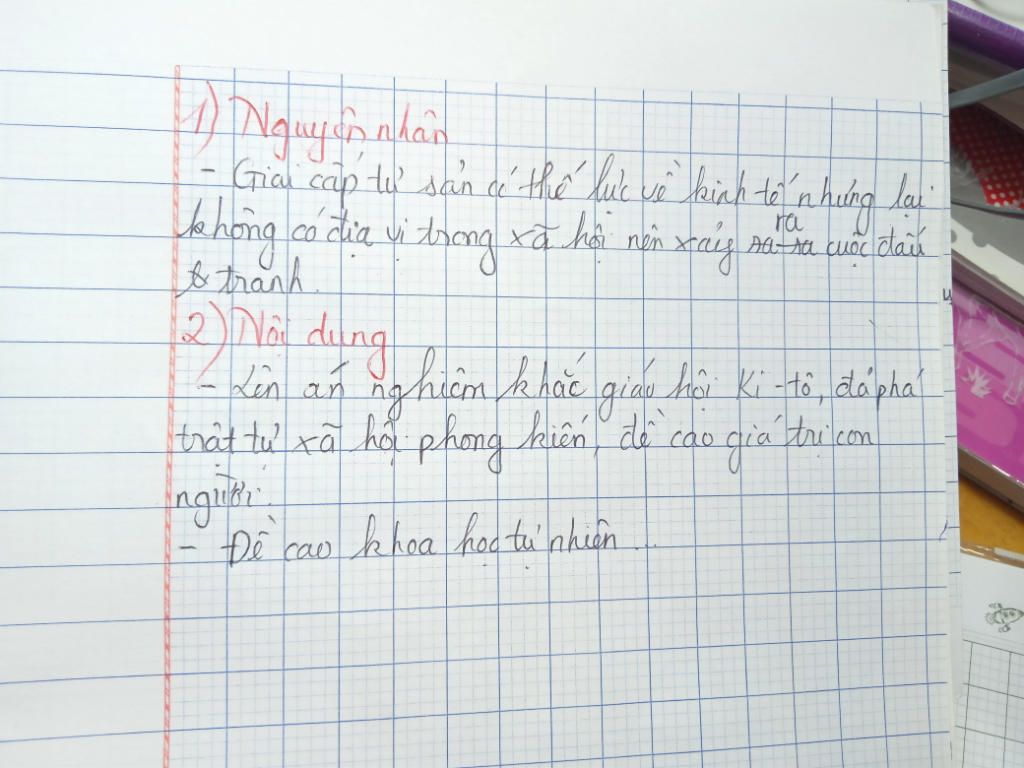 1) Nguyên nhân
- Giai cấp tư sản có thế lực về kinh tế nhưng lại
không có địa vị trong xã hội nên xảy ra cuộc đấu
tranh.
2) Nội dung
- Lên án nghiêm khắc giáo hội Ki-tô, đả phá
trật tự xã hội phong kiến, đề cao giá trị con
người.
- Đề cao khoa học tự nhiên...